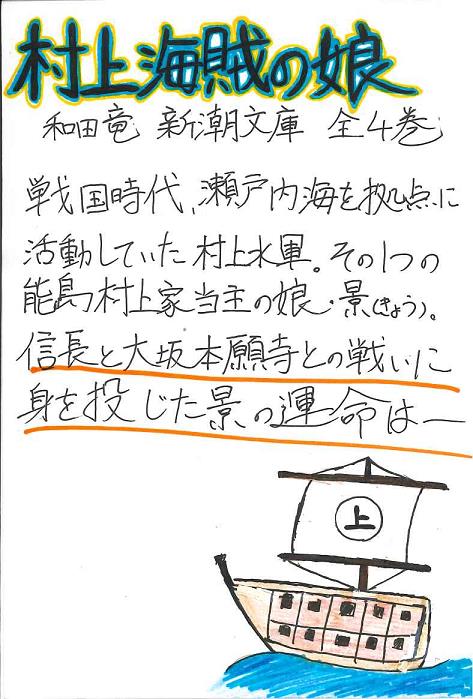 村上海賊の娘
和田竜 新潮文庫 全4巻
戦国時代、瀬戸内海を拠点に
活動していた村上水軍。その1つの
能島村上家当主の娘・景(きょう)。
信長と大坂本願寺との戦いに
身を投じた景の運命は―
上